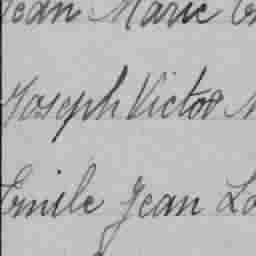 Jean Marie
Joseph Victor
Emile Jean